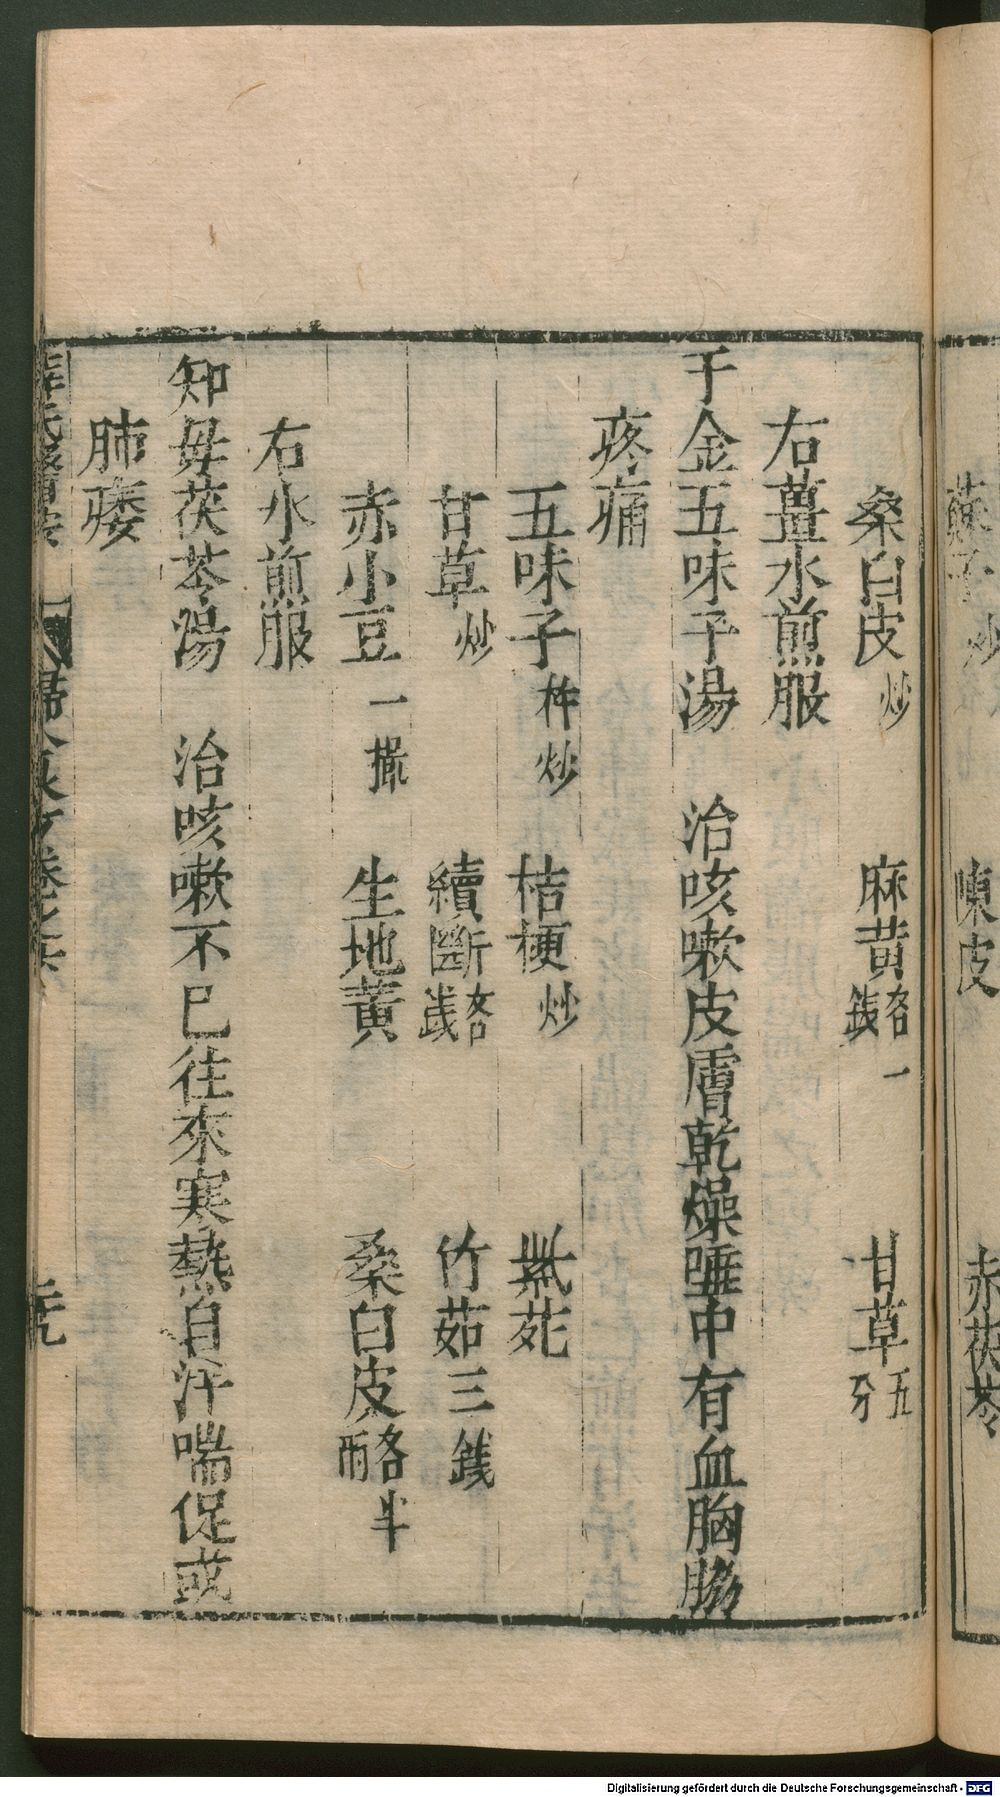 蘇子炒　陳皮　赤茯苓
桑白皮炒　麻黃各一錢　甘草五分
右薑水煎服
千金五味子湯　治咳嗽皮膚乾燥唾中有血胸脇
疼痛
五味子杵炒　桔梗炒　紫菀
甘草炒　續斷各錢　竹茹三錢
赤小豆一撮　生地黃　桑白皮各半兩
右水煎服
知母茯苓湯　治咳嗽不已往來寒熱自汗喘促或
肺痿
薛氏醫按　婦人良方卷之六　
Digitalisierung gefördert durch die Deutsche Forschungsgemeinschaft - DFG